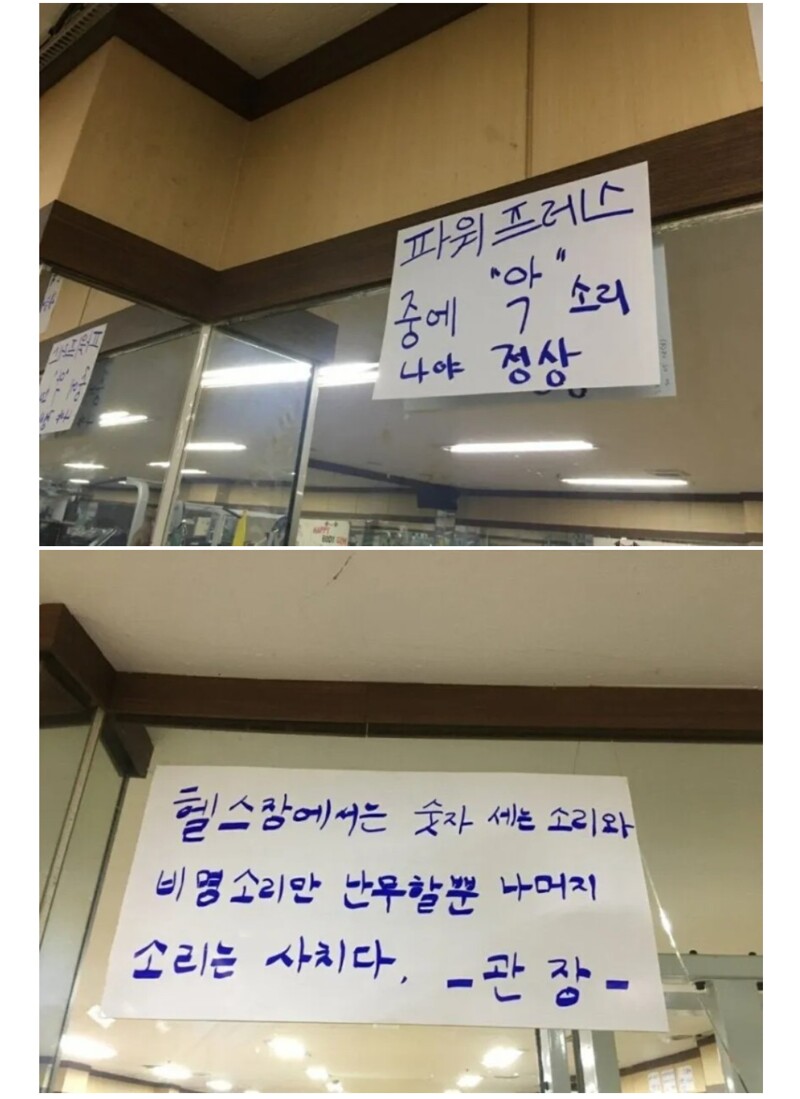 파워프레스
중에 "악" 소리
나야 정상
HAPPY
BODY GYM
헬스장에서는 숫자 세는 소리와
비명소리만 난무할뿐 나머지
소리는 사치다.
-관장-